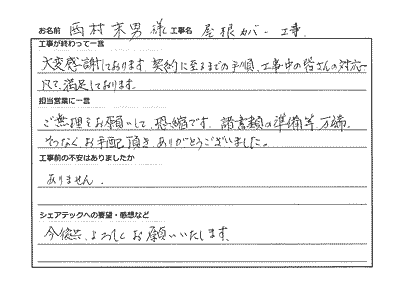 お名前 西村末男様 工事名 屋根カバー工事
工事が終わって一言
大変感謝しております。契約に至るまでの手順、工事中の皆さんの対応
凡て満足しております。
担当営業に一言
ご無理をお願いして、恐縮です。諸書類の準備等万端
そつなくお手配頂きありがとうございました。
工事前の不安はありましたか
ありません.
シェアテックへの要望・感想など
今後共、よろしくお願いいたします。